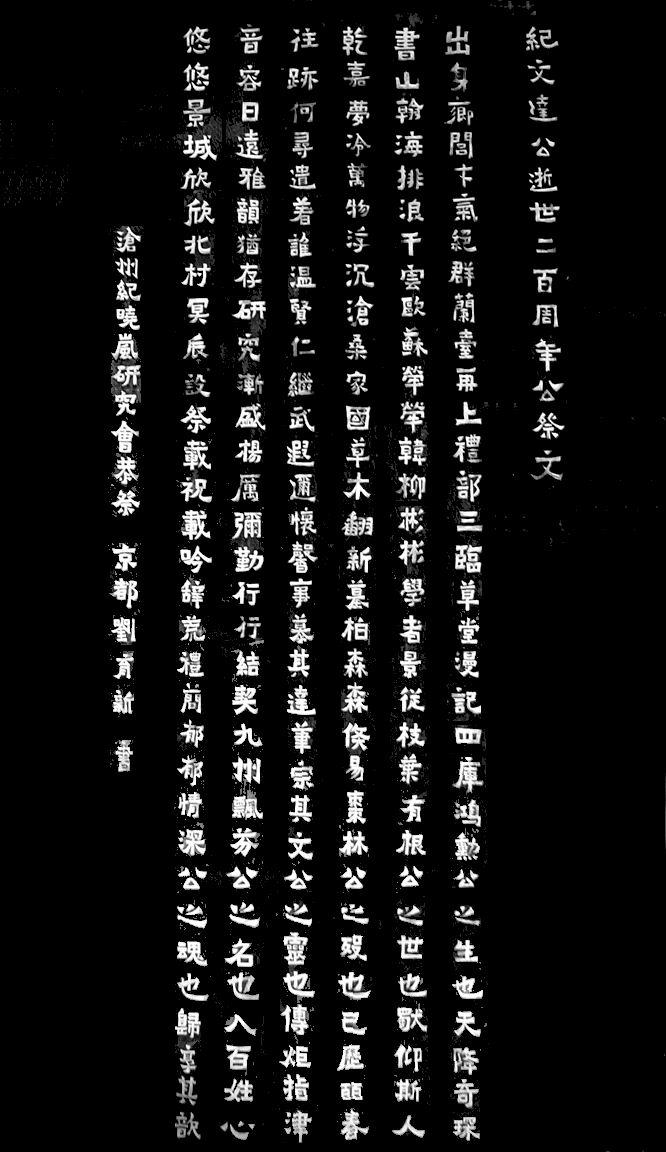 紀文達公逝世二百周年公祭文
出身鄉閭才氣絕群蘭臺再上禮部三臨草堂漫記四庫鴻勳公之生也天降奇琛
書山翰海排浪干雲歐蘇犖犖韓柳彬彬學者景從枝葉有根公之世也歟仰斯人
乾嘉夢冷萬物浮沉滄桑家國草木翻新墓柏森森倏易棗林公之歿也已歷百春
往跡何尋遺著誰溫賢仁繼武遐邇懷馨事慕其達筆宗其文公之靈也傳炬指津
音容日遠雅韻猶存研究漸盛揚厲彌勤行行結契九州飄芬公之名也入百姓心
悠悠景城欣欣北村冥辰設祭載祝載吟辭荒禮簡郁郁情深公之魂也歸享其歆
滄州紀曉嵐研究會恭祭 京都劉育新 書